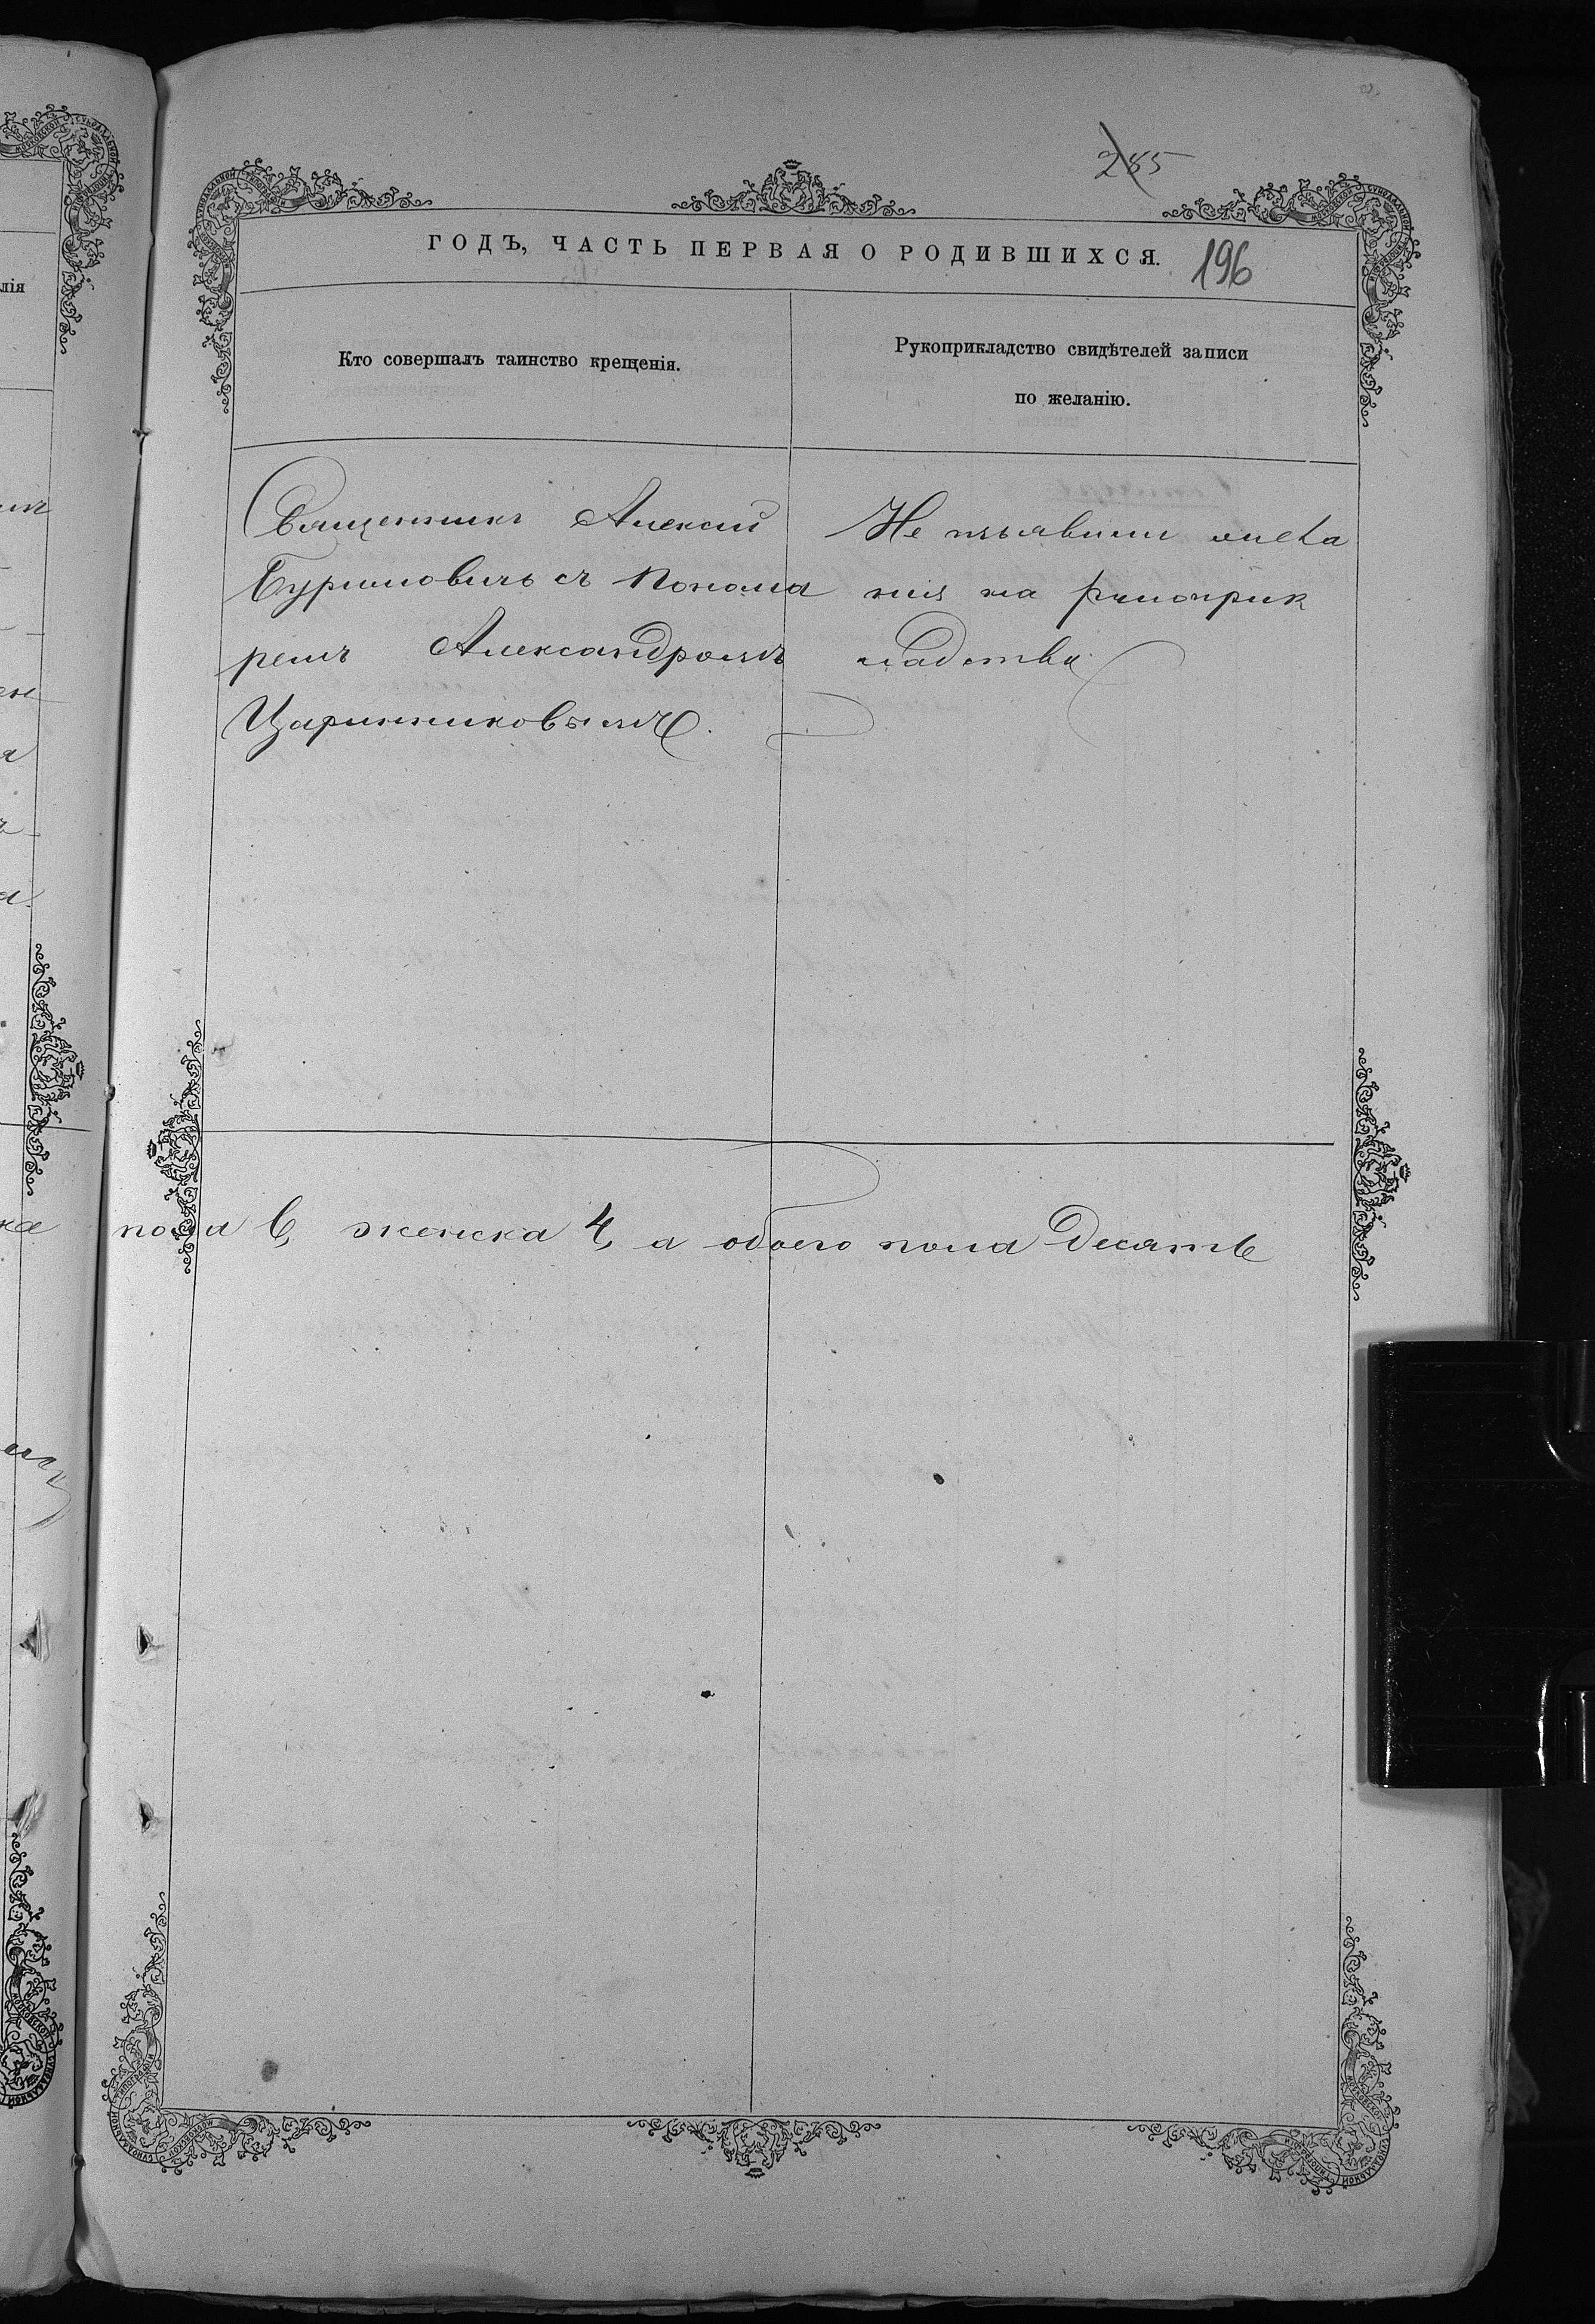 285
ГОДЪ, ЧАСТЬ ПЕРВАЯ О РОДИВШИХСЯ.
196
Кто совершалъ таинство крещенія.
Рукоприкладство свидѣтелей записи
по желанію.
Священникъ Алексій
с Понома
ремъ Александромъ
Царинниковымъ.
Не изъявили жела
нія на рукоприк
ладство
пола 6, женска 4, а обоего пола десять
лія
ка